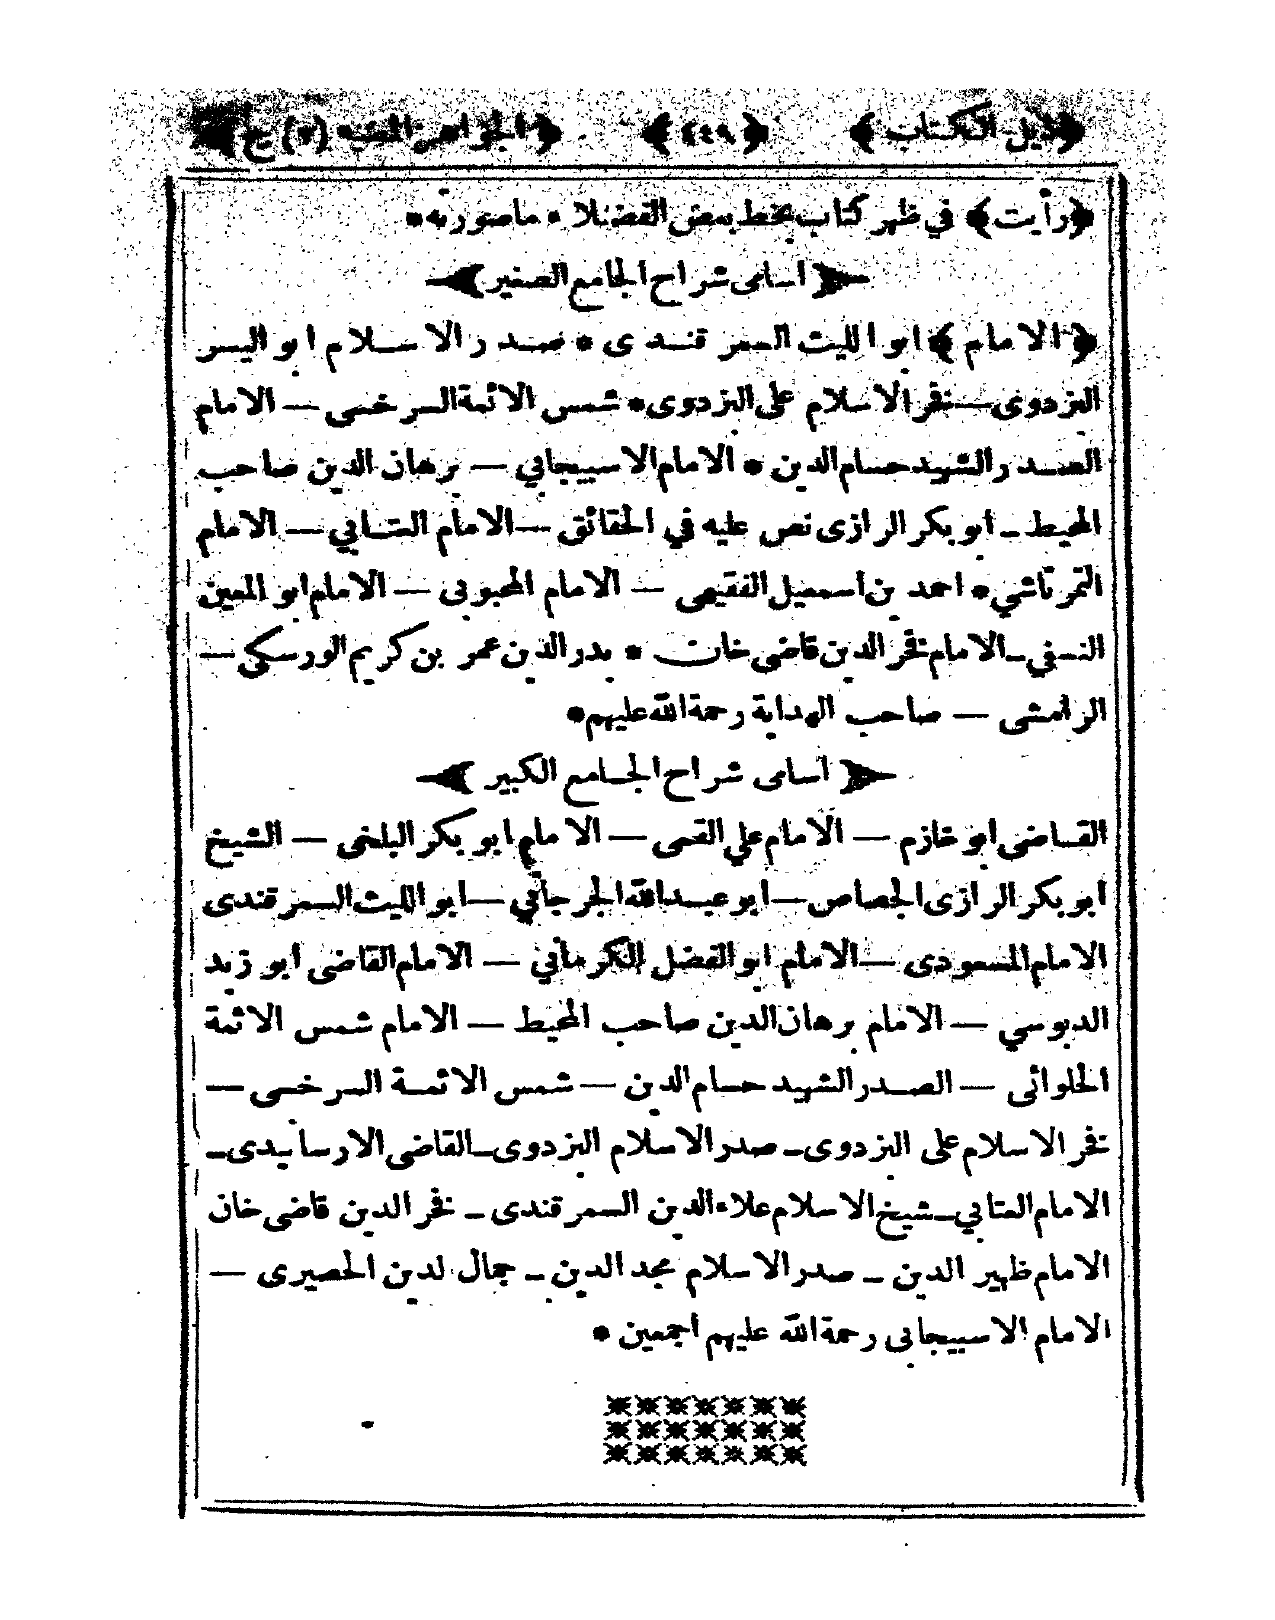 ﴿ذيل الكتاب﴾ ﴿٤٤٩﴾ ﴿الجواهر المضيه (٢) ج﴾
﴿رأيت﴾ في ظهر كتاب بخط بعض الفضلاء * ما صورته *
﴿اسامى شراح الجامع الصغير﴾
﴿الامام﴾ ابو الليث السمرقندى * صدر الاسلام ابو اليسر
البزدوى — فخر الاسلام على البزدوى * شمس الائمة السرخسى — الامام
الصدر الشهيد حسام الدين * الامام الاسبيجابي — برهان الدين صاحب
المحيط — ابو بكر الرازى نص عليه في الحقائق — الامام العتابي — الامام
التمرتاشي * احمد بن اسمعيل الفقيهى — الامام المحبوبى — الامام ابو المعين
النسفي — الامام فخر الدين قاضى خان * بدر الدين عمر بن كريم الورسكى —
الرامشى — صاحب الهداية رحمة الله عليهم *
﴿اسامى شراح الجامع الكبير﴾
القاضى ابو خازم — الامام علي القمى — الامام ابو بكر البلخى — الشيخ
ابو بكر الرازى الجصاص — ابو عبد الله الجرجاني — ابو الليث السمرقندى
الامام المسعودى — الامام ابو الفضل الكرماني — الامام القاضى ابو زيد
الدبوسي — الامام برهان الدين صاحب المحيط — الامام شمس الائمة
الحلوائى — الصدر الشهيد حسام الدين — شمس الائمة السرخسى —
فخر الاسلام على البزدوى — صدر الاسلام البزدوى — القاضى الارسابيدى —
الامام العتابي — شيخ الاسلام علاء الدين السمرقندى — فخر الدين قاضى خان
الامام ظهير الدين — صدر الاسلام مجد الدين — جمال لدين الحصيرى —
الامام الاسبيجابى رحمة الله عليهم اجمعين *